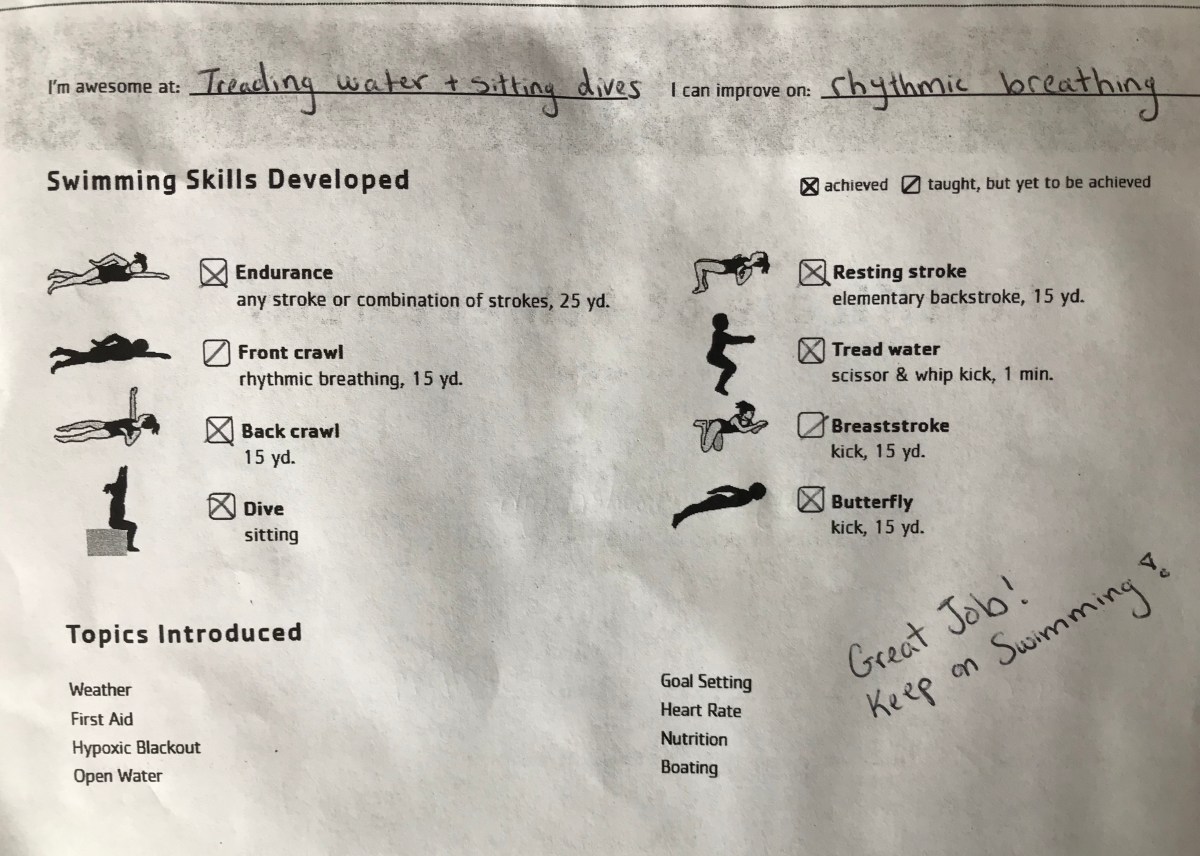 I'm awesome at: Treading water + sitting dives I can improve on: rhythmic breathing
Swimming Skills Developed
achieved taught, but yet to be achieved
Endurance
any stroke or combination of strokes, 25 yd.
Front crawl
rhythmic breathing, 15 yd.
Back crawl
15 yd.
Dive
sitting
Resting stroke
elementary backstroke, 15 yd.
Tread water
scissor & whip kick, 1 min.
Breaststroke
kick, 15 yd.
Butterfly
kick, 15 yd.
Great Job!
Keep on Swimming!
Topics Introduced
Weather
First Aid
Hypoxic Blackout
Open Water
Goal Setting
Heart Rate
Nutrition
Boating